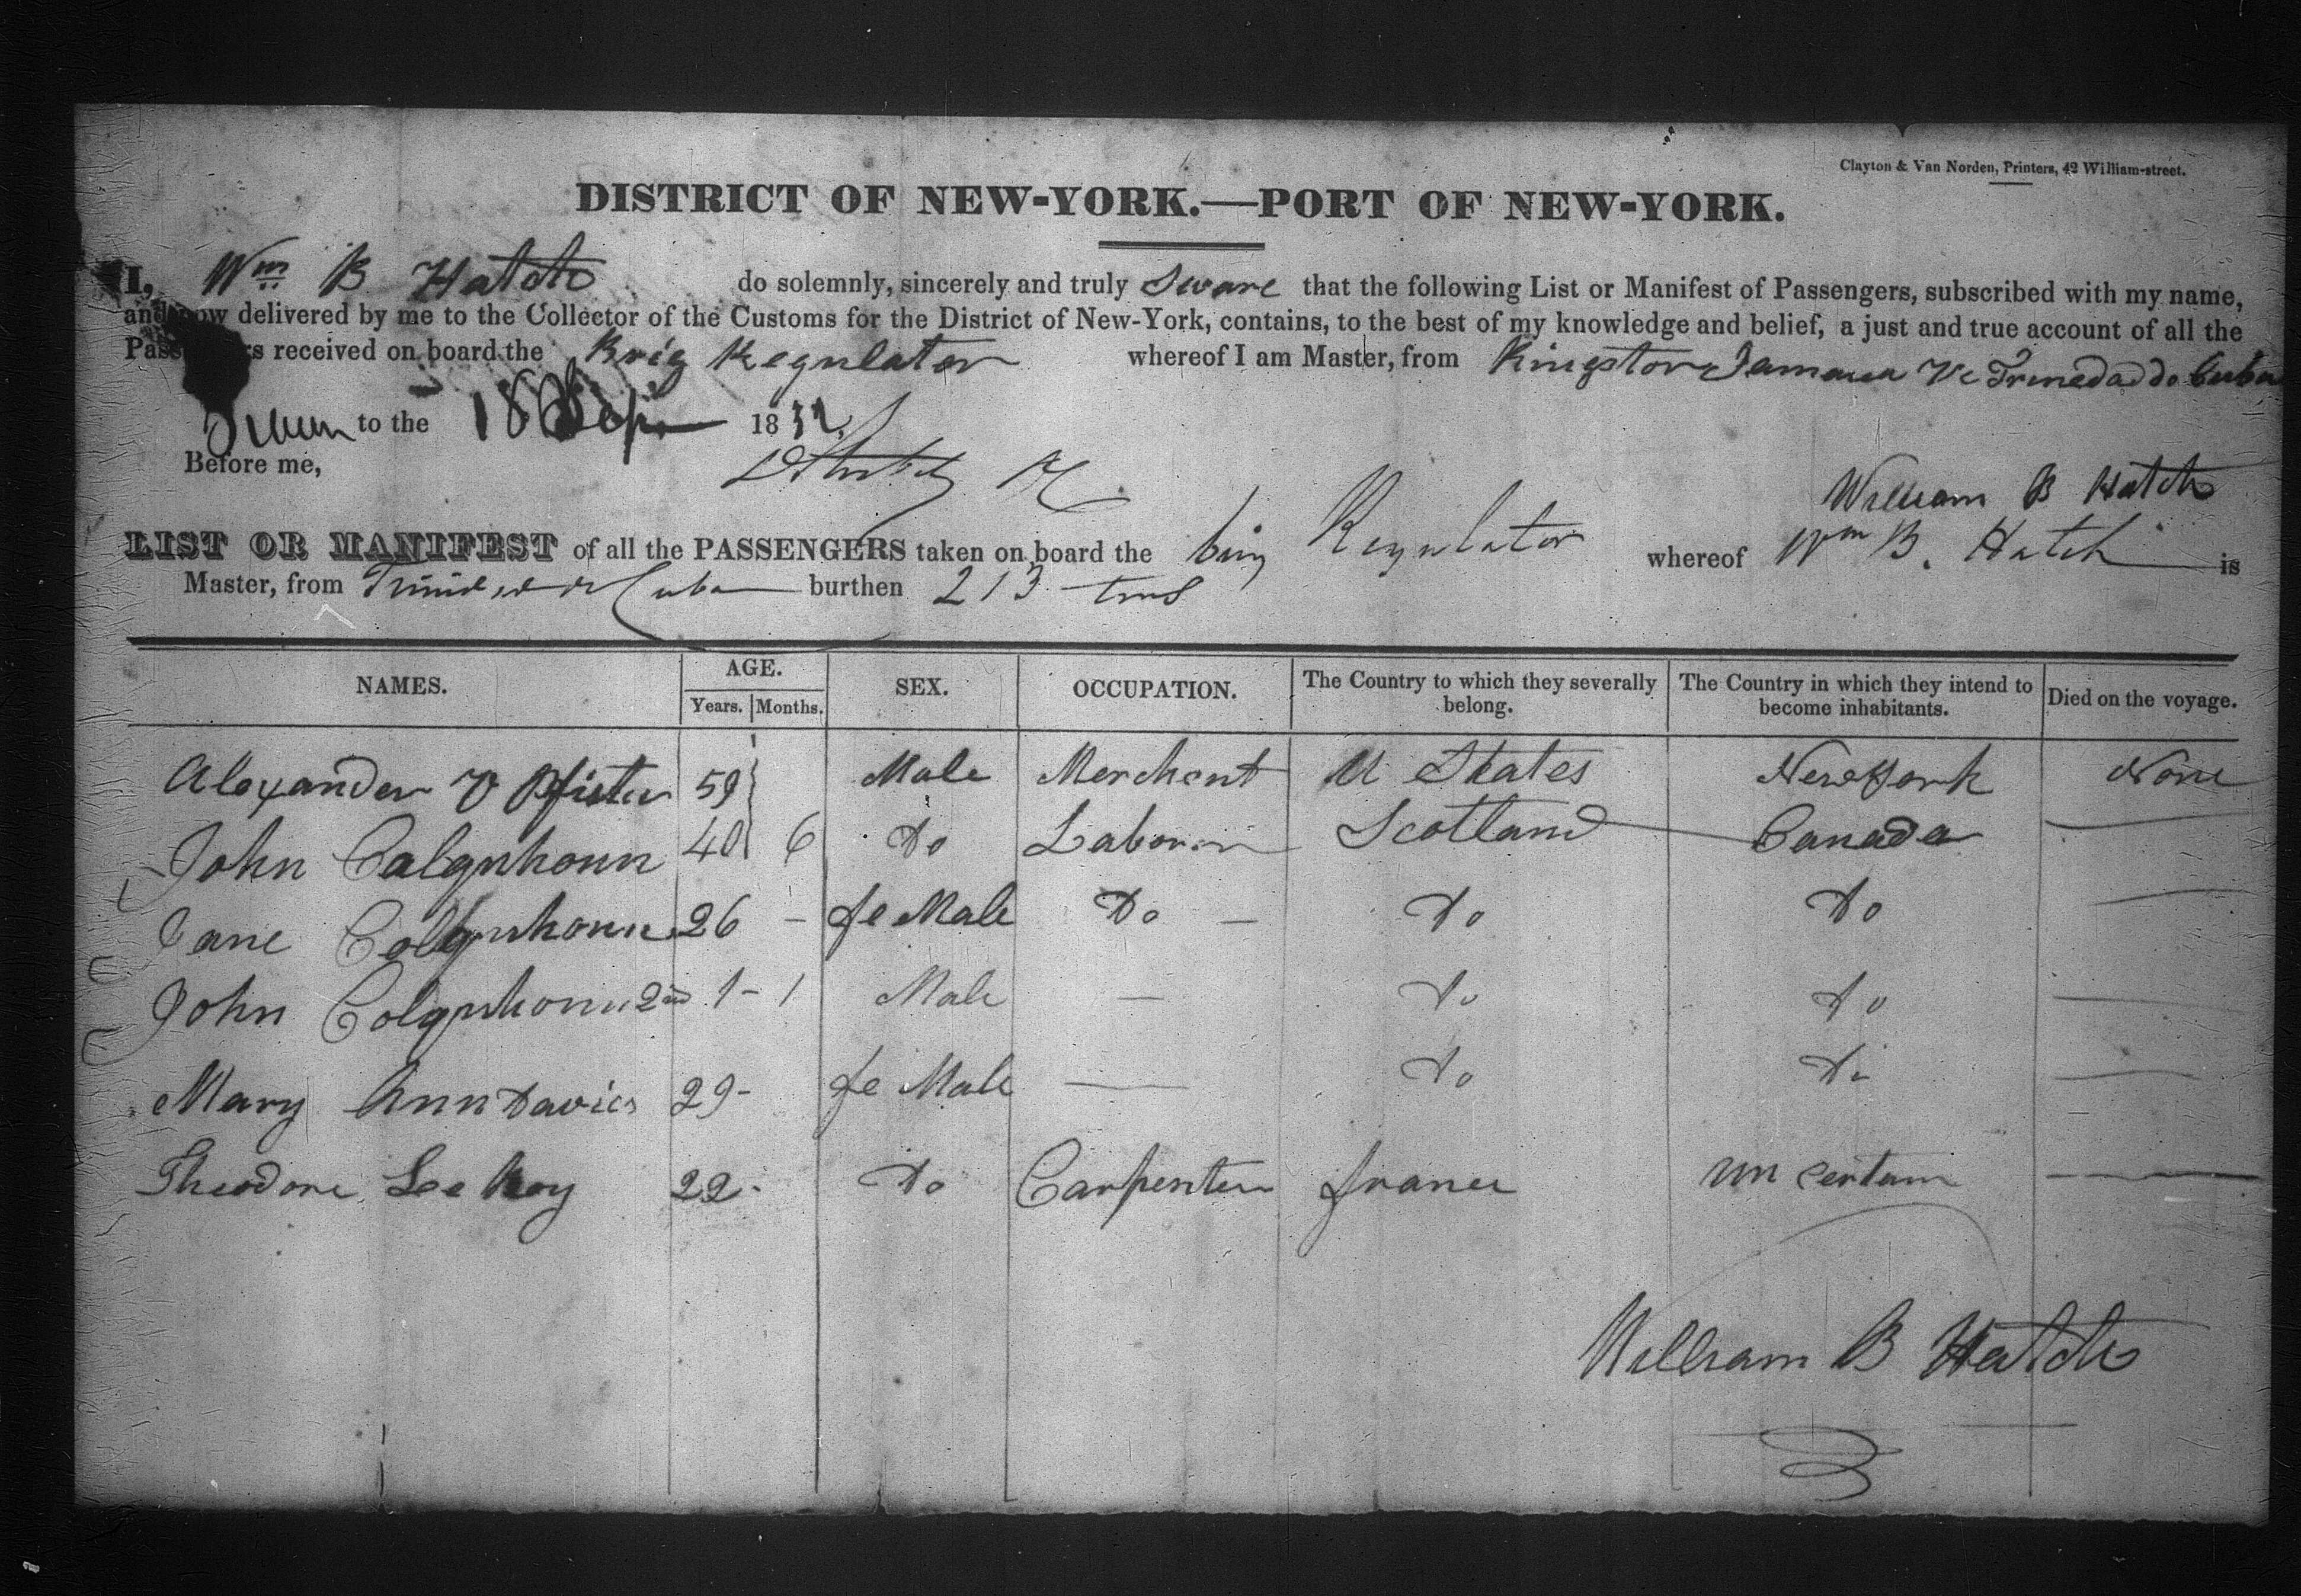 Clayton & Van Norden, Printers, 42 William-street.
DISTRICT OF NEW-YORK.—PORT OF NEW-YORK.
I, Wm B Hatch do solemnly, sincerely and truly Sware that the following List or Manifest of Passengers, subscribed with my name,
and now delivered by me to the Collector of the Customs for the District of New-York, contains, to the best of my knowledge and belief, a just and true account of all the
Passengers received on board the Brig Regulator whereof I am Master, from Kingston Jamaica Via Trinedad do Cuba
Sworn to the 18 Sep 1832
Before me,
William B Hatch
LIST OR MANIFEST of all the PASSENGERS taken on board the brig Regulator whereof Wm B. Hatch is
Master, from Trinidad de Cuba burthen 213 tons
NAMES. AGE. Years. Months. SEX. OCCUPATION. The Country to which they severally belong. The Country in which they intend to become inhabitants. Died on the voyage.
Alexander V Pfister 59 Male Merchant U States New York None
John Calquhoun 40 6 Do Laborer Scotland Canada —
Jane Colquhoun 26 – fe Male Do – Do Do —
John Colquhoun 2nd 1 – 1 Male — Do Do —
Mary Ann Davies 29 - fe Male — Do Do —
Theodore Le Roy 22 - Do Carpenter france un certain —
William B Hatch